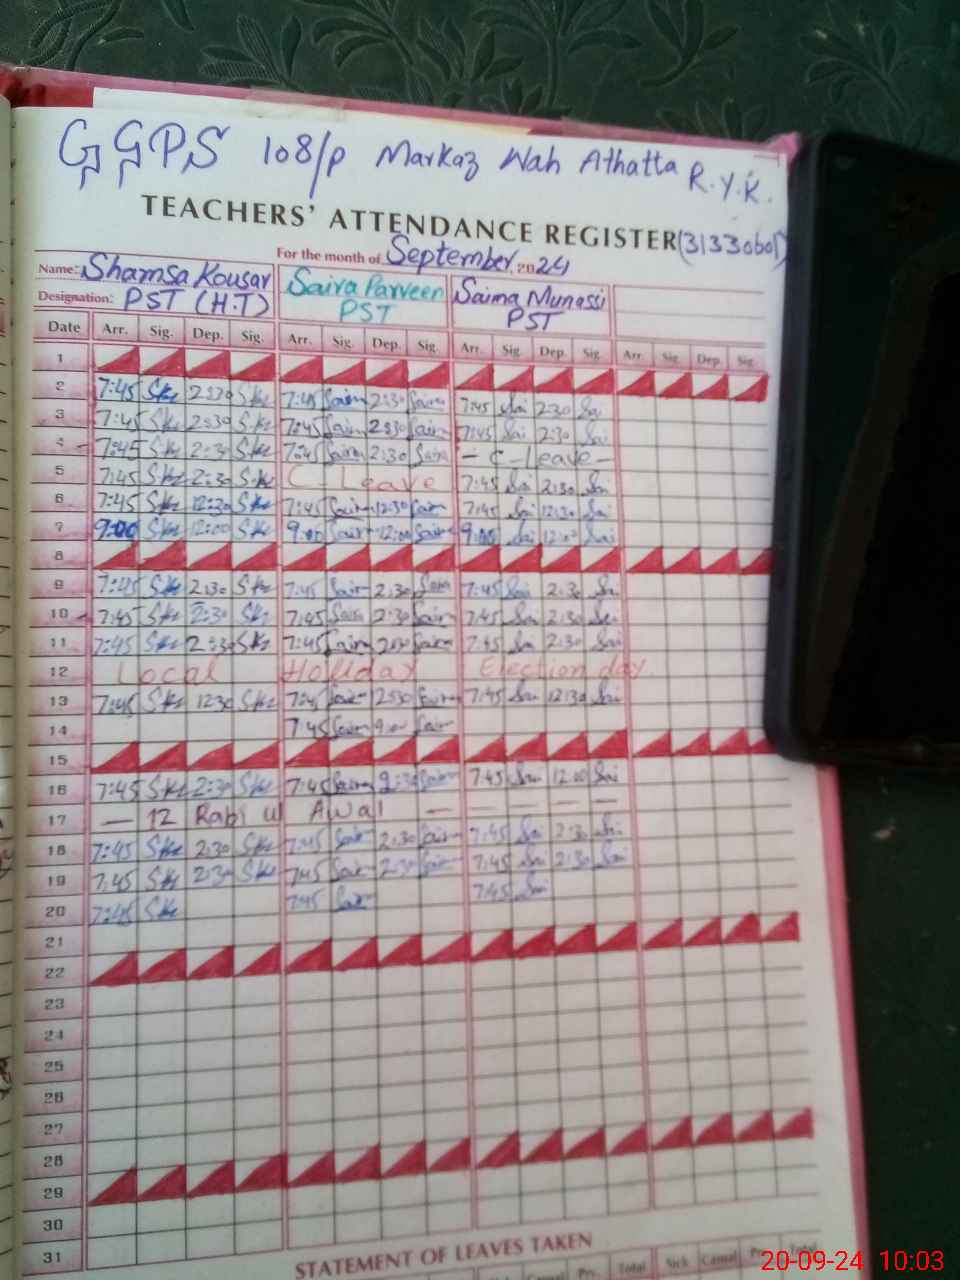 GGPS 108/P Markaz Wah Athatta R.Y.K.
TEACHERS' ATTENDANCE REGISTER (31330601)
For the month of September 2024
Name: Shamsa Kousar Saira Parveen Saima Munassi
Designation: PST (H.T) PST PST
Date Arr. Sig. Dep. Sig. Arr. Sig. Dep. Sig. Arr. Sig. Dep. Sig. Arr. Sig. Dep. Sig.
1
2 7:45 Sks 2:30 Sks 7:45 Saira 2:30 Saira 7:45 Sai 2:30 Sai
3 7:45 Sks 2:30 Sks 7:45 Saira 2:30 Saira 7:45 Sai 2:30 Sai
4 7:45 Sks 2:30 Sks 7:45 Saira 2:30 Saira - C - Leave -
5 7:45 Sks 2:30 Sks C Leave 7:45 Sai 2:30 Sai
6 7:45 Sks 12:30 Sks 7:45 Saira 12:30 Saira 7:45 Sai 12:30 Sai
7 9:00 Sks 12:00 Sks 9:00 Saira 12:00 Saira 9:00 Sai 12:00 Sai
8
9 7:45 Sks 2:30 Sks 7:45 Saira 2:30 Saira 7:45 Sai 2:30 Sai
10 7:45 Sks 2:30 Sks 7:45 Saira 2:30 Saira 7:45 Sai 2:30 Sai
11 7:45 Sks 2:30 Sks 7:45 Saira 2:30 Saira 7:45 Sai 2:30 Sai
12 Local Holiday Election day
13 7:45 Sks 1230 Sks 7:45 Saira Saira 7:45 Sai 12:30 Sai
14 7:45 Saira Saira
15
16 7:45 Sks 2:30 Sks 7:45 Saira 2:30 Saira 7:45 Sai 12:00 Sai
17 — 12 Rabi ul Awal — — — — —
18 7:45 Sks 2:30 Sks 7:45 Saira 2:30 Saira 7:45 Sai 2:30 Sai
19 7:45 Sks 2:30 Sks 7:45 Saira 2:30 Saira 7:45 Sai 2:30 Sai
20 7:45 Sks 7:45 Saira 7:45 Sai
21
22
23
24
25
26
27
28
29
30
31
STATEMENT OF LEAVES TAKEN
Sick Casual Prv. Total Sick Casual Prv. Total
20-09-24 10:03